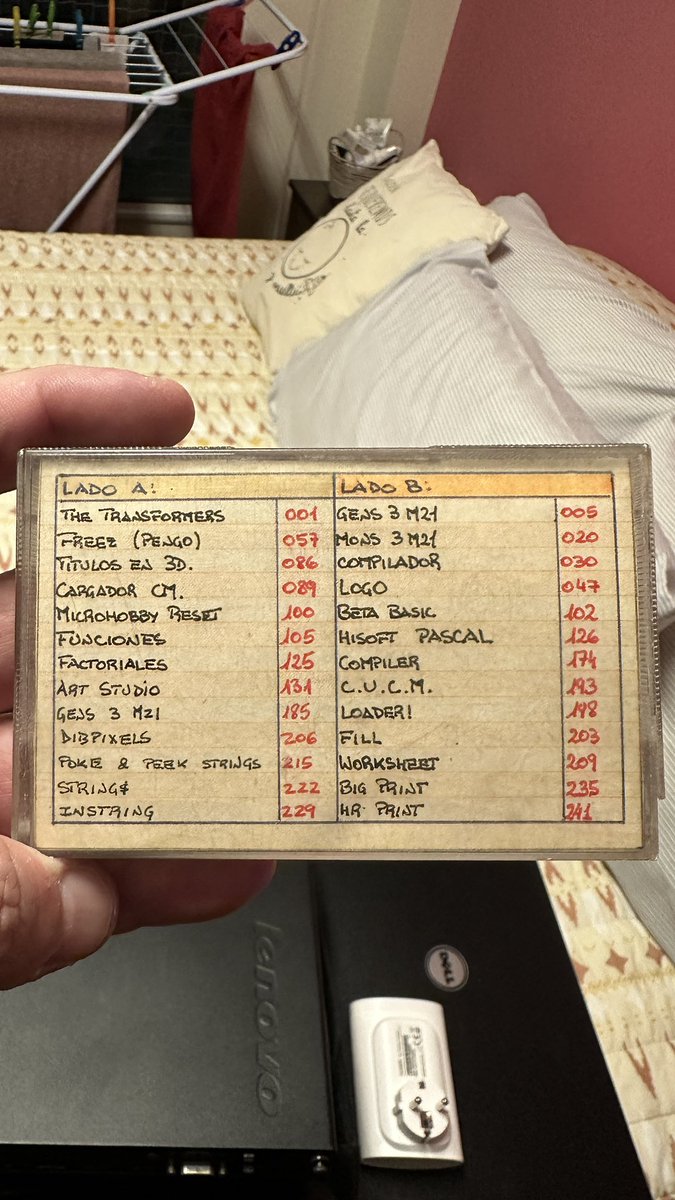 LADO A:
THE TRANSFORMERS 001
FREEZ (PENGO) 057
TITULOS EN 3D. 086
CARGADOR CM. 089
MICROHOBBY RESET 100
FUNCIONES 105
FACTORIALES 125
ART STUDIO 131
GENS 3 M21 185
DIBPIXELS 206
POKE & PEEK STRINGS 215
STRING$ 222
INSTRING 229
LADO B:
GENS 3 M21 005
MONS 3 M21 020
COMPILADOR 030
LOGO 047
BETA BASIC 102
HISOFT PASCAL 126
COMPILER 174
C.U.C.M. 193
LOADER! 198
FILL 203
WORKSHEET 209
BIG PRINT 235
HR PRINT 241
lenovo
DELL